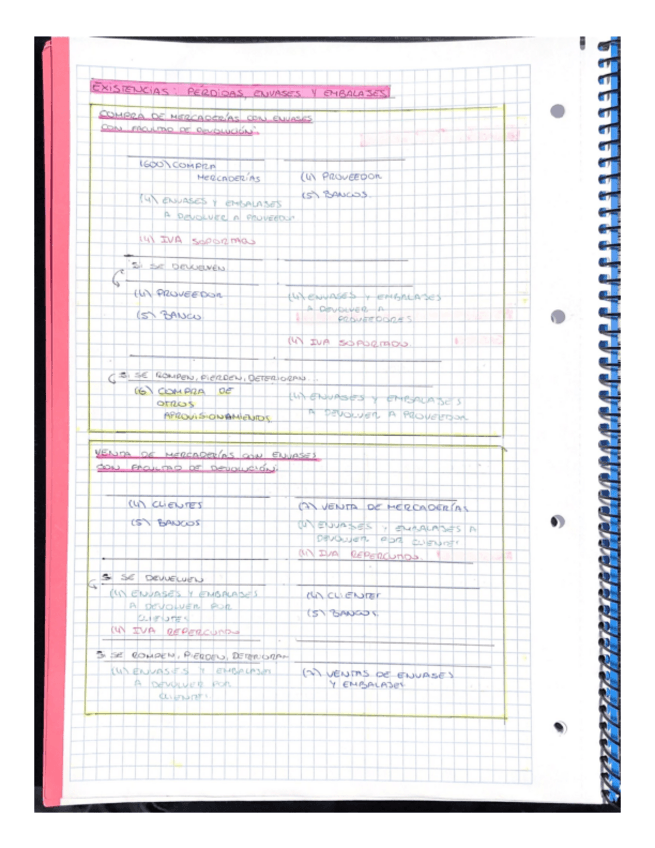 EXISTENCIAS: PÉRDIDAS, ENVASES Y EMBALAJES
COMPRA DE MERCADERÍAS CON ENVASES
CON FACULTAD DE DEVOLUCIÓN:
(600) COMPRA
MERCADERÍAS
(4) PROVEEDOR
(5) BANCOS
(4) ENVASES Y EMBALAJES
A DEVOLVER A PROVEEDOR
(4) IVA SOPORTADO
SI SE DEVUELVEN
(4) PROVEEDOR
(5) BANCO
(4) ENVASES Y EMBALAJES
A DEVOLVER A
PROVEEDORES
(4) IVA SOPORTADO
SI SE ROMPEN, PIERDEN, DETERIORAN...
(6) COMPRA DE
OTROS
APROVISIONAMIENTOS
(4) ENVASES Y EMBALAJES
A DEVOLVER A PROVEEDOR
VENTA DE MERCADERÍAS CON ENVASES
CON FACULTAD DE DEVOLUCIÓN:
(4) CLIENTES
(5) BANCOS
(7) VENTA DE MERCADERÍAS
(4) ENVASES Y EMBALAJES A
DEVOLVER POR CLIENTES
(4) IVA REPERCUTIDO
SI SE DEVUELVEN
(4) ENVASES Y EMBALAJES
A DEVOLVER POR
CLIENTES
(4) IVA REPERCUTIDO
(4) CLIENTES
(5) BANCOS
SI SE ROMPEN, PIERDEN, DETERIORAN
(4) ENVASES Y EMBALAJES
A DEVOLVER POR
CLIENTES
(7) VENTAS DE ENVASES
Y EMBALAJES